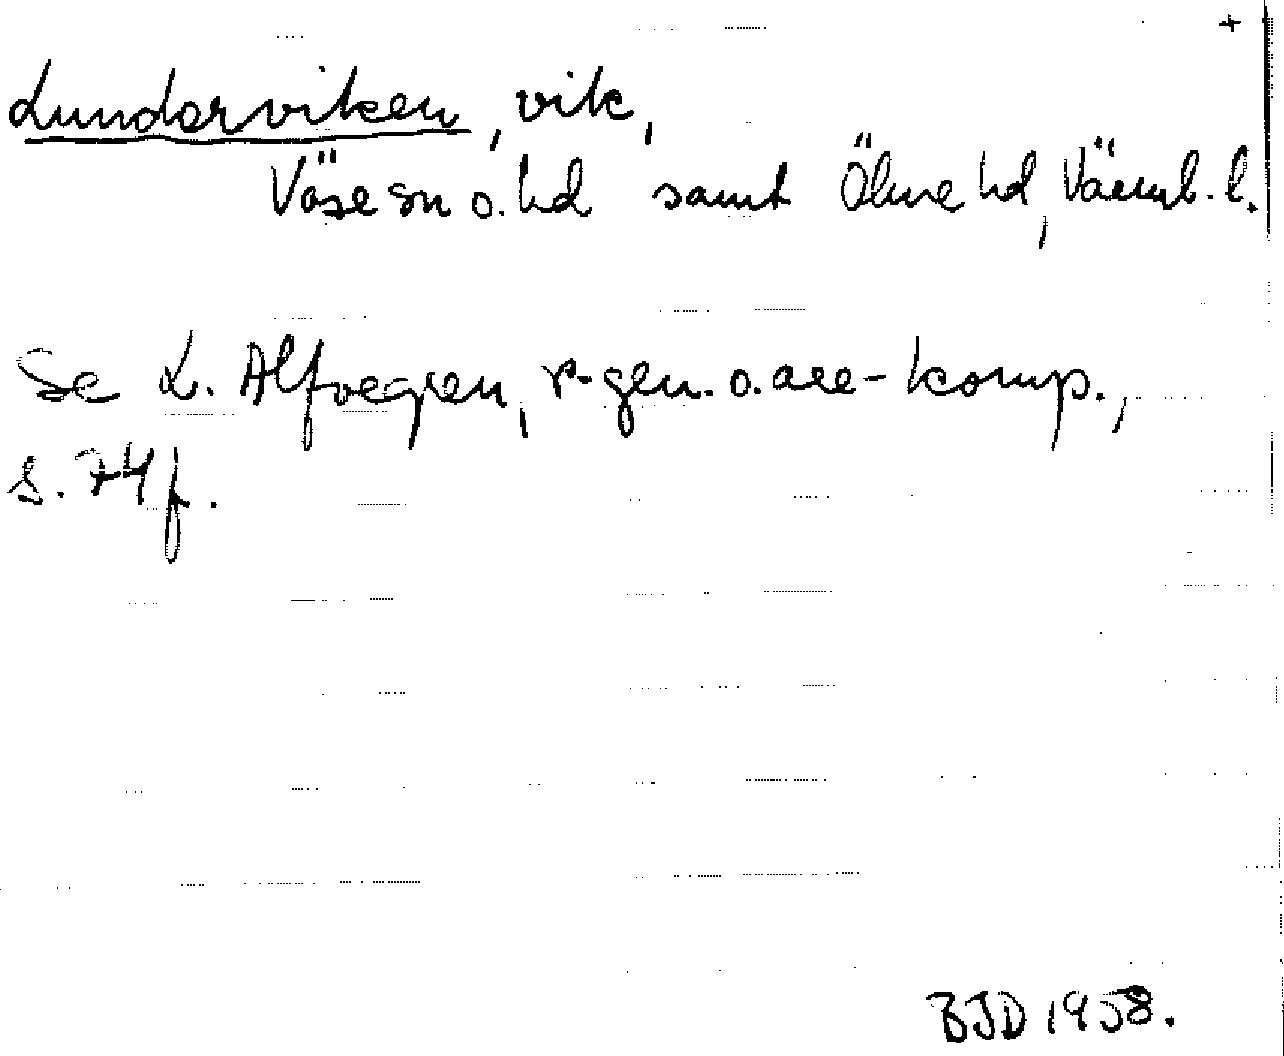 +
Lundarviken, vik,
Väse sn o. hd samt Ölme hd, Värml. l.
Se L. Alfvegren, r-gen. o. ack-komp.,
s. 74 f.
BJD 1958.